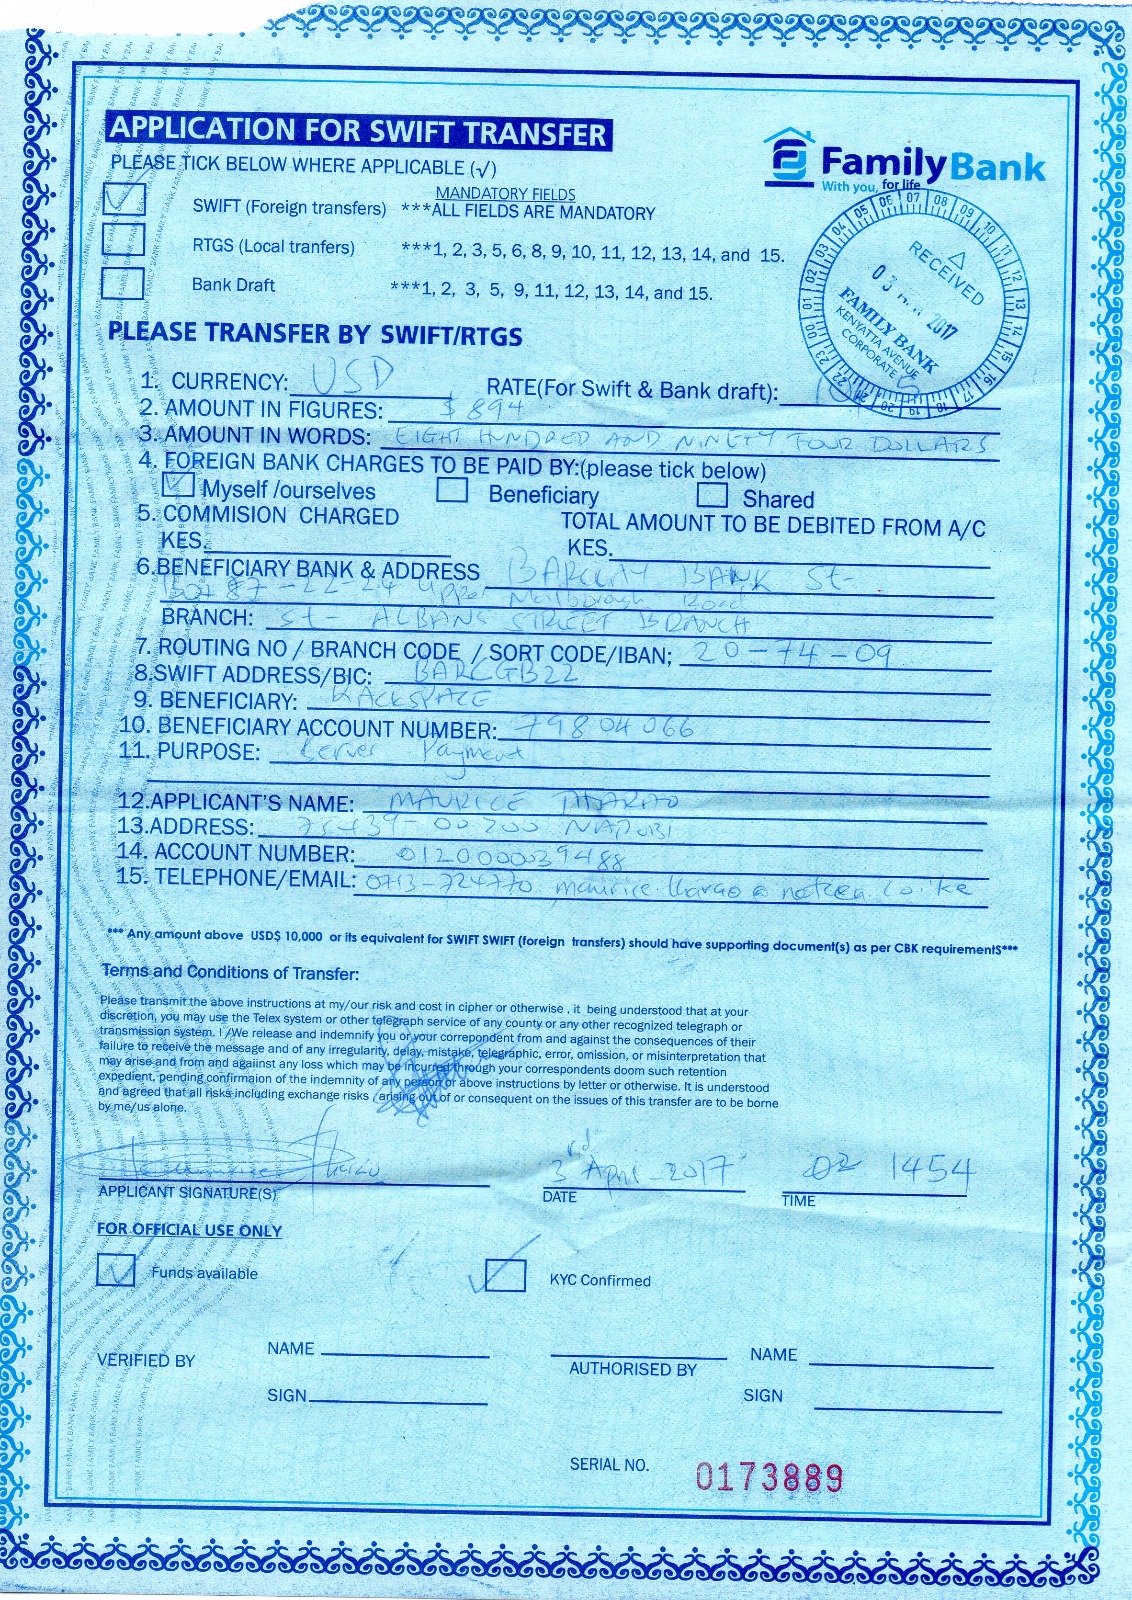 APPLICATION FOR SWIFT TRANSFER
PLEASE TICK BELOW WHERE APPLICABLE (√)
FamilyBank
With you, for life
MANDATORY FIELDS
SWIFT (Foreign transfers) ***ALL FIELDS ARE MANDATORY
RTGS (Local tranfers) ***1, 2, 3, 5, 6, 8, 9, 10, 11, 12, 13, 14, and 15.
Bank Draft ***1, 2, 3, 5, 9, 11, 12, 13, 14, and 15.
RECEIVED
03 2017
FAMILY BANK
KENYATTA AVENUE
CORPORATE
PLEASE TRANSFER BY SWIFT/RTGS
1. CURRENCY: USD RATE(For Swift & Bank draft):
2. AMOUNT IN FIGURES: $ 894
3. AMOUNT IN WORDS: EIGHT HUNDRED AND NINETY FOUR DOLLARS
4. FOREIGN BANK CHARGES TO BE PAID BY:(please tick below)
Myself /ourselves Beneficiary Shared
5. COMMISION CHARGED TOTAL AMOUNT TO BE DEBITED FROM A/C
KES. KES.
6.BENEFICIARY BANK & ADDRESS BARCLAY BANK St-
Upper Marlborough Road
BRANCH: St- ALBANS STREET BRANCH
7. ROUTING NO / BRANCH CODE / SORT CODE/IBAN; 20-74-09
8.SWIFT ADDRESS/BIC: BARCGB22
9. BENEFICIARY: RACKSPACE
10. BENEFICIARY ACCOUNT NUMBER: 79804066
11. PURPOSE: Server Payment
12.APPLICANT'S NAME: MAURICE THARAO
13.ADDRESS: 75439-00200 NAIROBI
14. ACCOUNT NUMBER: 012000039488
15. TELEPHONE/EMAIL: 0713-724770
*** Any amount above USD$ 10,000 or its equivalent for SWIFT SWIFT (foreign transfers) should have supporting document(s) as per CBK requirementS***
Terms and Conditions of Transfer:
Please transmit the above instructions at my/our risk and cost in cipher or otherwise , it being understood that at your
discretion, you may use the Telex system or other telegraph service of any county or any other recognized telegraph or
transmission system. I /We release and indemnify you or your correpondent from and against the consequences of their
failure to receive the message and of any irregularity, delay, mistake, telegraphic, error, omission, or misinterpretation that
may arise and from and agaiinst any loss which may be incurred through your correspondents doom such retention
expedient, pending confirmaion of the indemnity of any person or above instructions by letter or otherwise. It is understood
and agreed that all risks including exchange risks arising out of or consequent on the issues of this transfer are to be borne
by me/us alone.
3rd April 2017 1454
APPLICANT SIGNATURE(S) DATE TIME
FOR OFFICIAL USE ONLY
Funds available KYC Confirmed
VERIFIED BY NAME AUTHORISED BY NAME
SIGN SIGN
SERIAL NO. 0173889